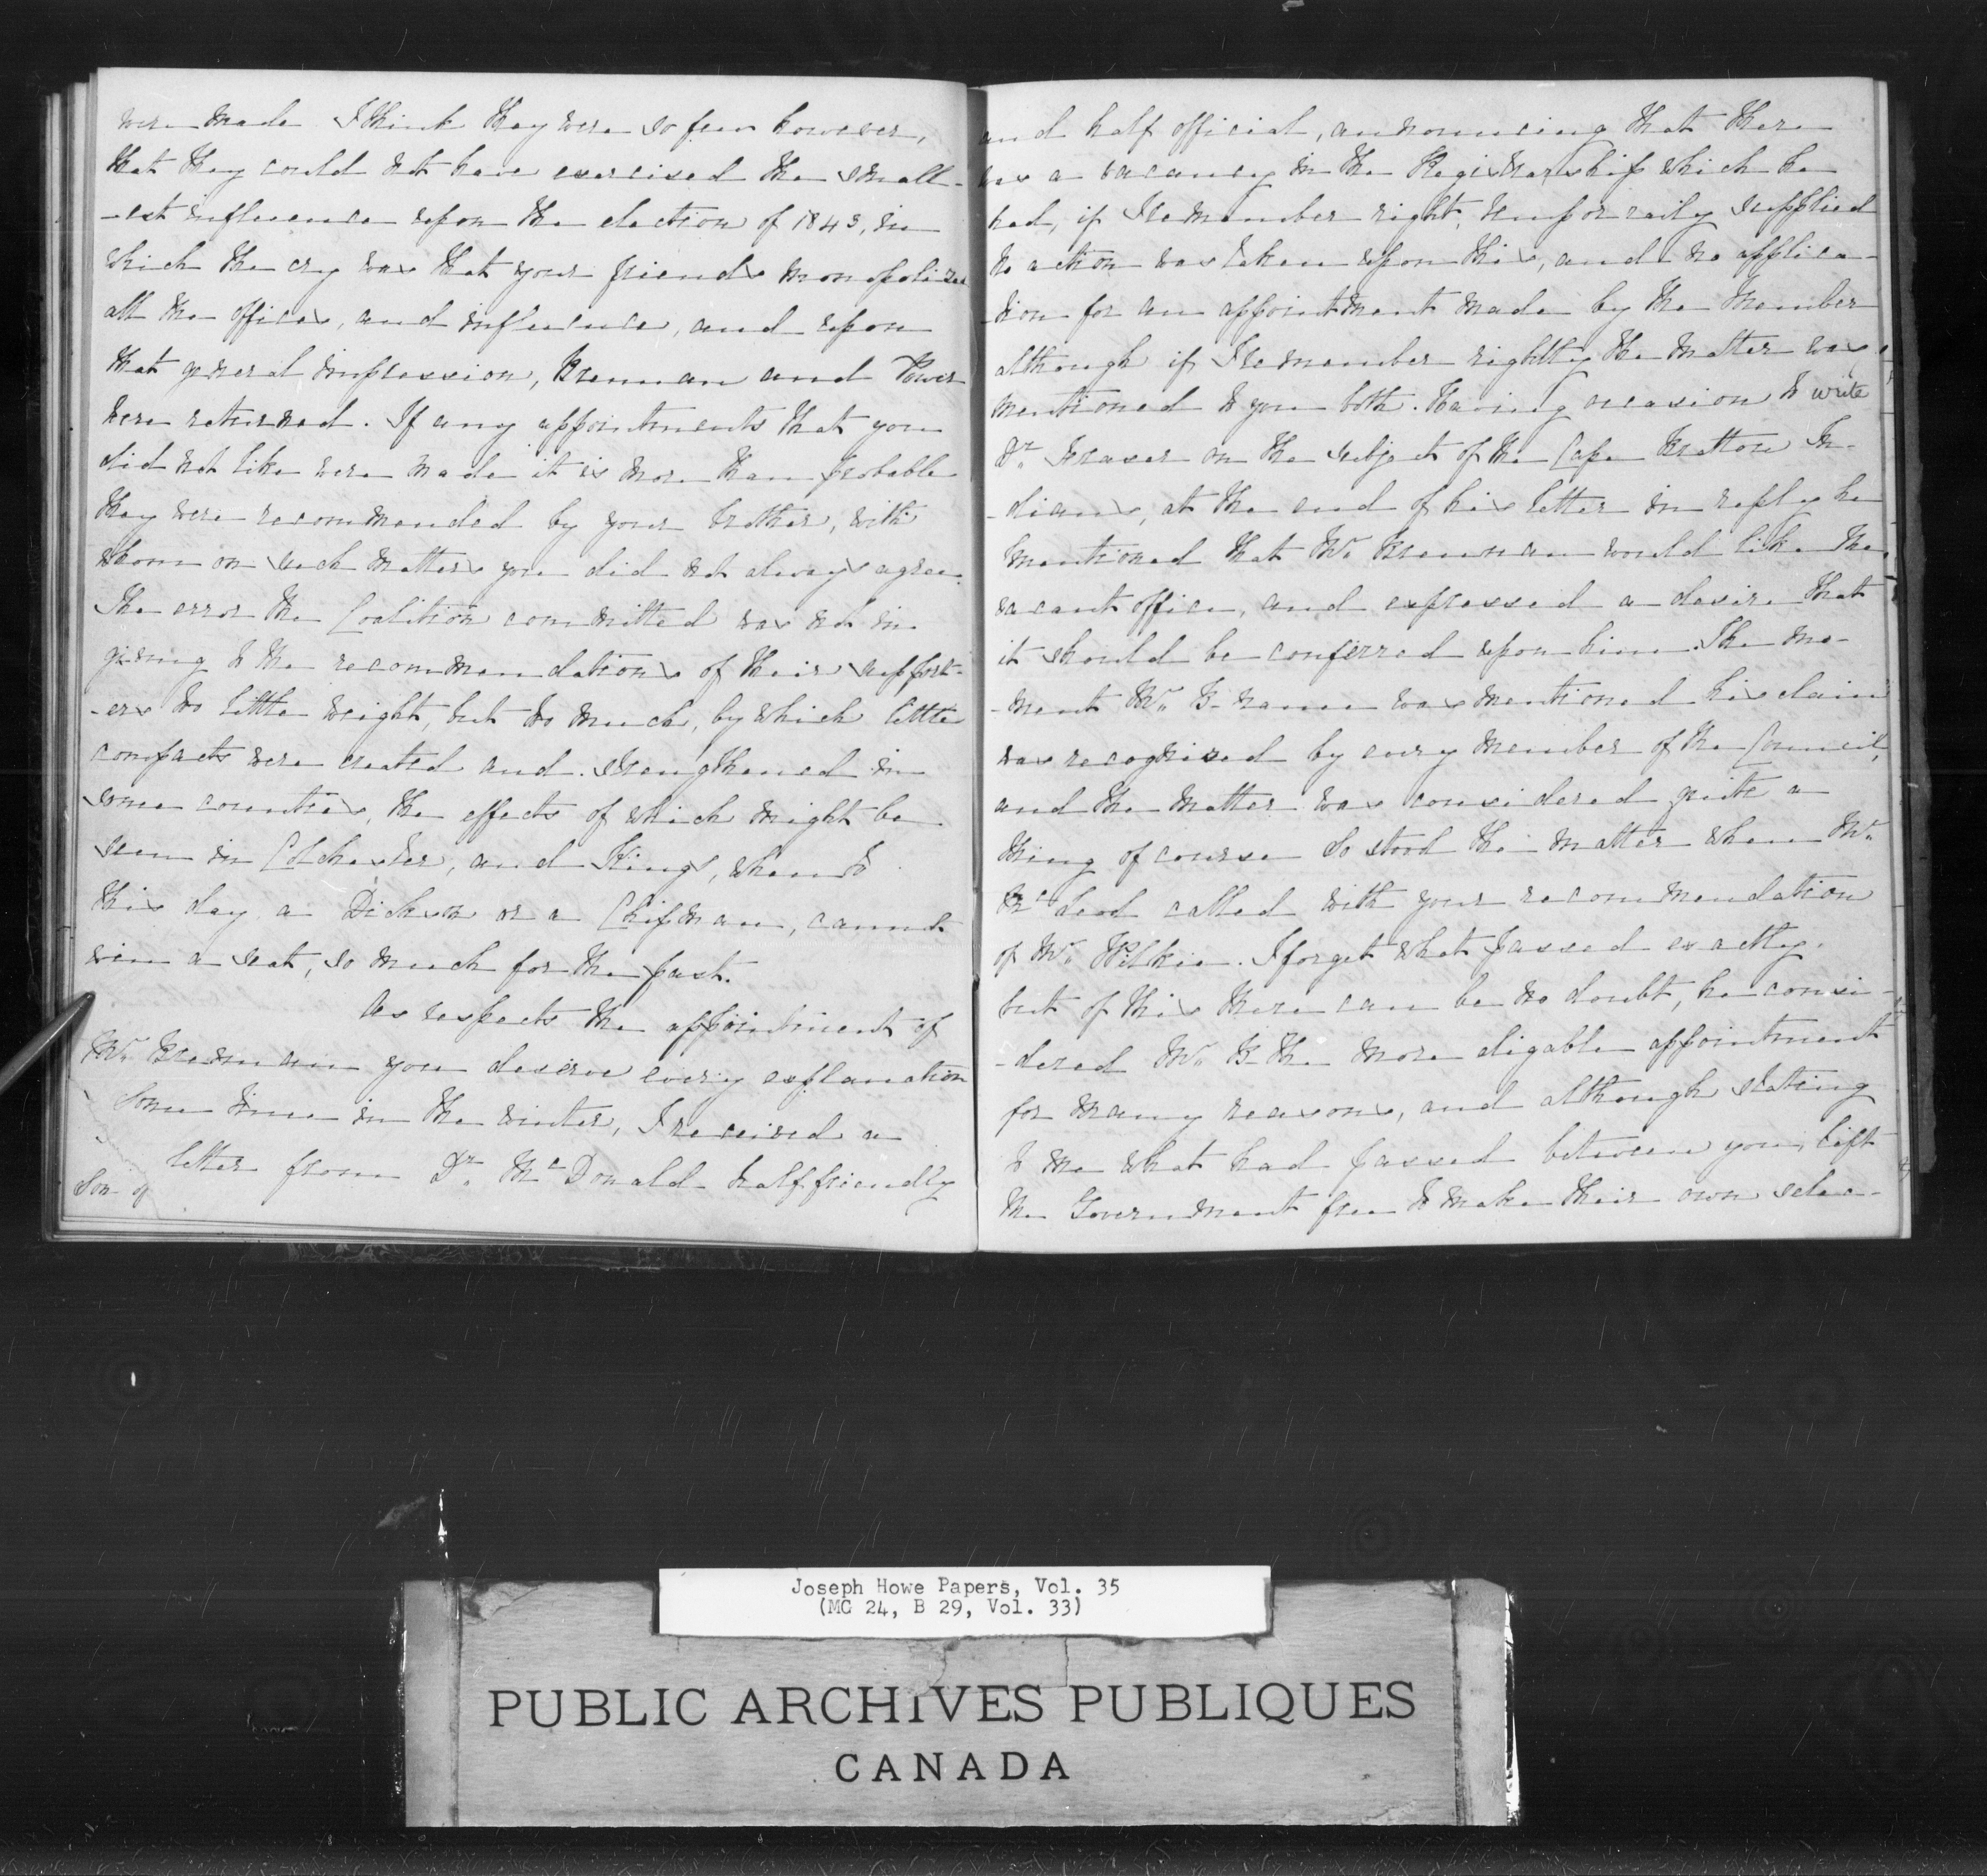 were made I think they were so few however,
that they could not have exercised the small-
-est influence upon the election of 1843, in
which the cry was that your friends monopolized
all the offices, and influence, and upon
that general impression, Brennan and Power
were returned. If any appointments that you
did not like were made it is more than probable
they were recommended by your brother, with
whom on such matters you did not always agree.
The error the Coalition committed was not in
giving to the recommendations of their support-
-ers too little weight, but too much, by which little
compacts were created and strengthened in
some counties, the effects of which might be
seen in Colchester, and Kings, when to
this day a Dickson or a Chipman, cannot
win a seat, so much for the past.
As respects the appointment of
Mr. Brennan you deserve every explanation
Some time in the winter, I received a
letter from Dr. McDonald half friendly
Son of
and half official, announcing that there
was a vacancy in the Registrarship which he
had, if I remember right, temporaily supplied
no action was taken upon this, and no applica-
-tion for an appointment made by the Member
although if I remember rightly the matter was
mentioned to you both. Having occasion to write
Dr. Fraser on the subject of the Cape Bretton In-
-dians, at the end of his letter in reply he
mentioned that Mr. Brennan would like the
vacant office, and expressed a desire that
it should be conferred upon him. The mo-
-ment Mr. B- name was mentioned his claim
was recognised by every member of the Council,
and the matter was considered quite a
thing of course So stood the matter when Mr.
McLeod called with your recommendation
of Mr. Wilkie. I forget what passed exactly.
but of this there can be no doubt, he consi-
-dered Mr. B- the more eligable appointment
for many reasons, and although stating
to me what had passed between you, left
the Government free to make their own selec-
Joseph Howe Papers, Vol. 35
(MG 24, B 29, Vol. 33)
PUBLIC ARCHIVES PUBLIQUES
CANADA